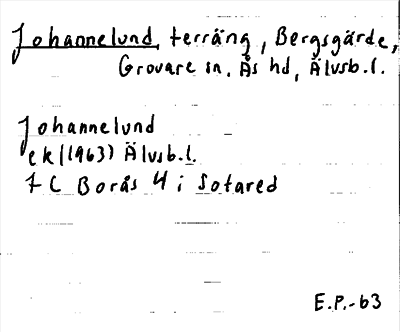 Johannelund, terräng, Bergsgärde,
Grovare sn, Ås hd, Älvsb.l.
Johannelund
ek (1963) Älvsb.l.
7 C Borås 4 i Sotared
E.P.-63